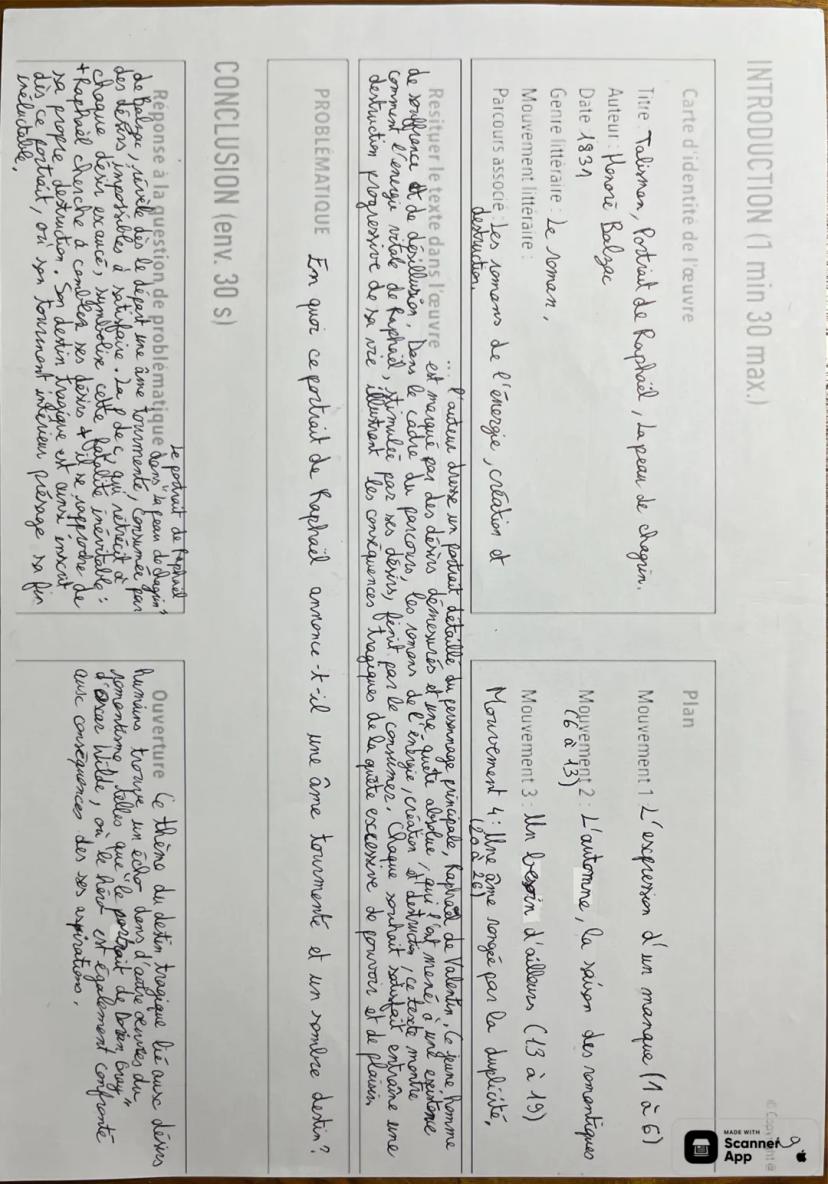 INTRODUCTION (1 min 30 max.)
Carte d'identité de l'œuvre
Titre : Talisman, Portrait de Raphaël, La peau de chagrin.
Auteur : Honoré Balzac
Date 1831
Genre littéraire : Le roman,
Mouvement littéraire :
Parcours associé : Les romans de l'énergie, création et
destruction.
Plan
Mouvement 1 L'expression d'un manque (1 à 6)
Mouvement 2 : L'automne, la saison des romantiques
(6 à 13)
Mouvement 3 : Un besoin d'ailleurs (13 à 19)
Mouvement 4 : Une âme rongée par la duplicité,
(20 à 26)
... l'auteur dresse un portrait détaillé du personnage principale, Raphaël de Valentin, Ce jeune homme
Resituer le texte dans l'œuvre est marqué par des désirs démesurés et une quête absolue, qui l'ont mené à une existence
de souffrance et de désillusion. Dans le cadre du parcours, les romans de l'énergie, création et destruction, ce texte montre
comment l'énergie vitale de Raphaël, stimulée par ses désirs, finit par le consumer. Chaque souhait satisfait entraîne une
destruction progressive de sa vie illustrant les conséquences tragiques de la quête excessive de pouvoir et de plaisir.
PROBLÉMATIQUE En quoi ce portrait de Raphaël annonce-t-il une âme tourmente et un sombre destin ?
CONCLUSION (env. 30 s)
Le portrait de Raphaël
Réponse à la question de problématique dans "La peau de chagrin"
de Balzac, révèle dès le départ une âme tourmenté, consumée par
des désirs impossibles à satisfaire. La P de c, qui rétrécit à
chaque désir exaucé, symbolise cette fatalité inévitable :
+ Raphaël cherche à combler ses désirs + il se rapproche de
sa propre destruction. Son destin tragique est ainsi inscrit
dès ce portrait, où son tourment intérieur présage sa fin
inéluctable.
Ouverture Ce thème du destin tragique lié aux désirs
humains trouve un écho dans d'autre œuvres du
romantisme, telles que "le portrait de Dorian Gray"
d'Oscar Wilde, où le héro est également confronté
aux conséquences des ses aspirations.
MADE WITH
Scanner
App